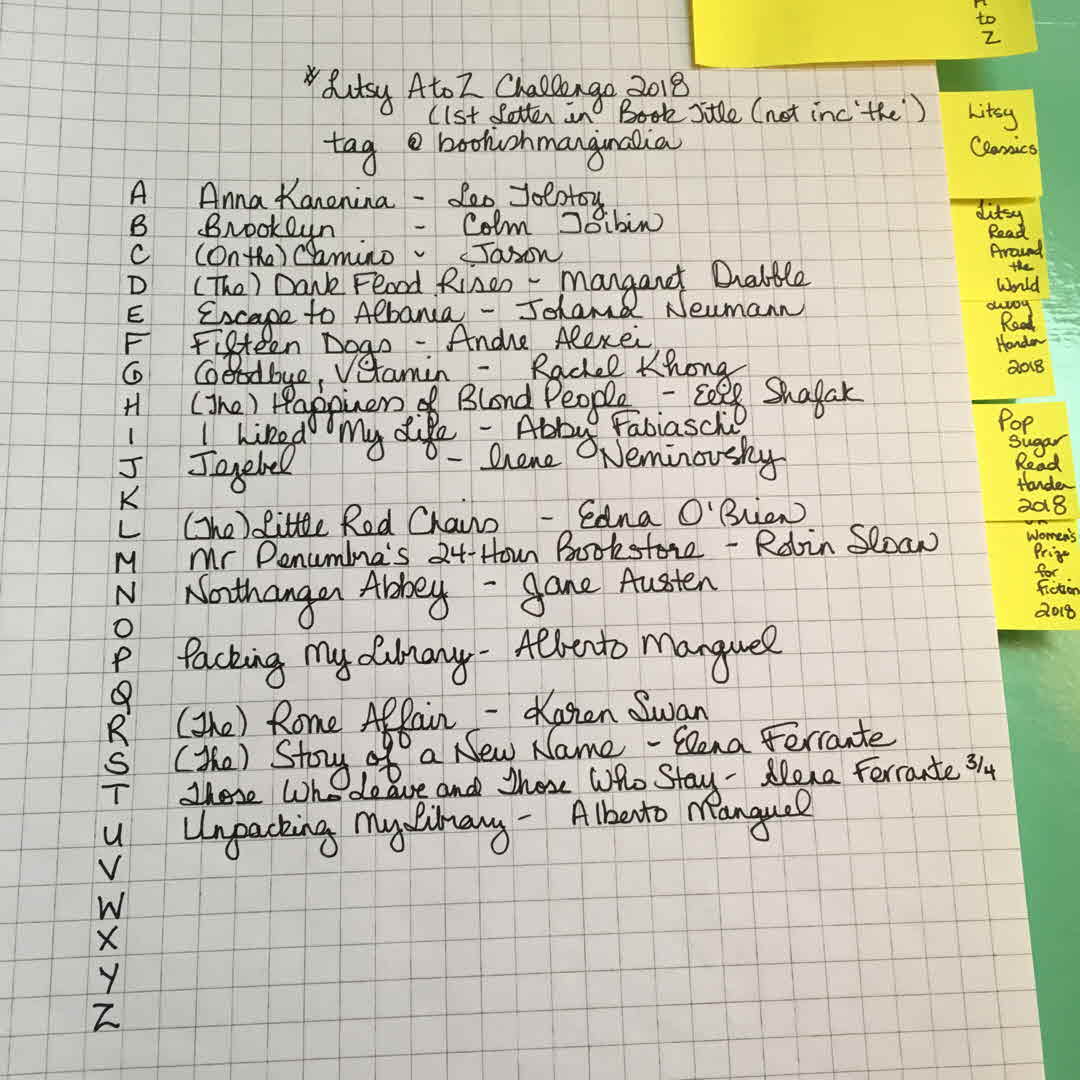 * Litsy A to Z Challenge 2018
(1st Letter in Book Title (not inc 'the')
tag @ bookishmarginalia
A Anna Karenina - Leo Tolstoy
B Brooklyn - Colm Toibin
C (On the) Camino - Jason
D (The) Dark Flood Rises - Margaret Drabble
E Escape to Albania - Johanna Neumann
F Fifteen Dogs - Andre Alexei
G Goodbye, Vitamin - Rachel Khong
H (The) Happiness of Blond People - Elif Shafak
I I Liked My Life - Abby Fabiaschi
J Jezebel - Irene Nemirovsky
K
L (The) Little Red Chairs - Edna O'Brien
M Mr Penumbra's 24-Hour Bookstore - Robin Sloan
N Northanger Abbey - Jane Austen
O
P Packing My Library - Alberto Manguel
Q
R (The) Rome Affair - Karen Swan
S (The) Story of a New Name - Elena Ferrante
T Those Who Leave and Those Who Stay - Elena Ferrante 3/4
U Unpacking My Library - Alberto Manguel
V
W
X
Y
Z
A
to
Z
Litsy
Classics
Litsy
Read
Around
the
World
Read
Harder
2018
Pop
Sugar
Read
Harder
2018
Women's
Prize
for
Fiction
2018